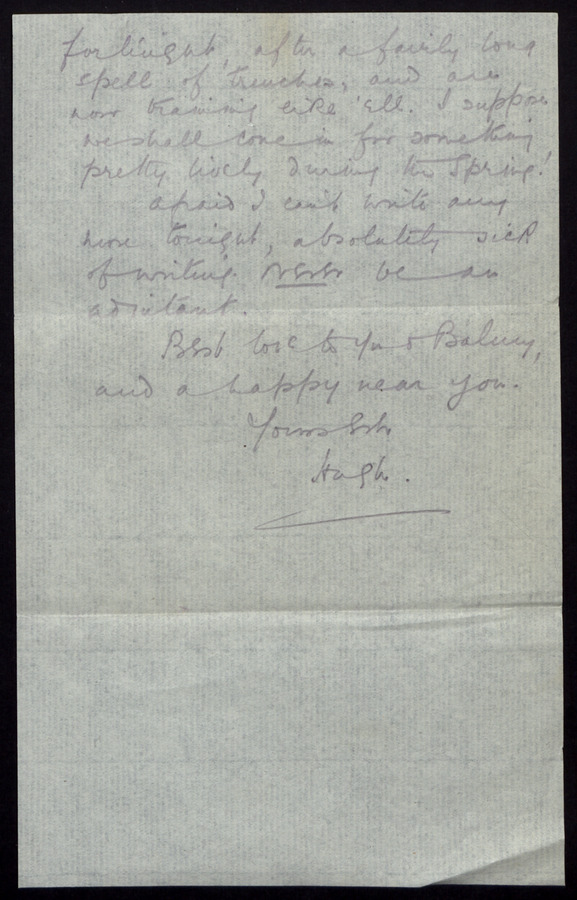 fortnight, after a fairly long
spell of trenches, and are
now training like 'ell. I suppose
we shall come in for something
pretty lively during the Spring!
Afraid I can't write any
more tonight, absolutely sick
of writing. Never be an
adjutant.
Best love to you &
and a happy new year.
Yours
Hugh.